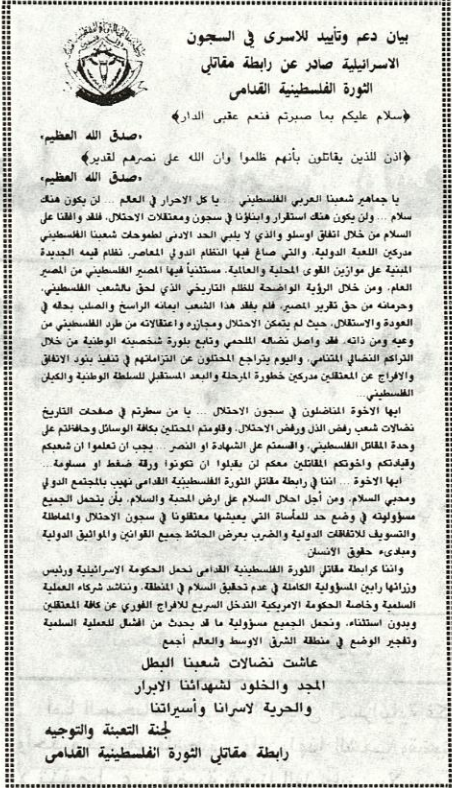 بيان دعم وتأييد للاسرى في السجون
الاسرائيلية صادر عن رابطة مقاتلي
الثورة الفلسطينية القدامى
﴿سلام عليكم بما صبرتم فنعم عقبى الدار﴾
«صدق الله العظيم»
﴿اذن للذين يقاتلون بأنهم ظلموا وان الله على نصرهم لقدير﴾
«صدق الله العظيم»
يا جماهير شعبنا العربي الفلسطيني ... يا كل الاحرار في العالم ... لن يكون هناك
سلام ... ولن يكون هناك استقرار وابناؤنا في سجون ومعتقلات الاحتلال، فلقد وافقنا على
السلام من خلال اتفاق اوسلو والذي لا يلبي الحد الادنى لطموحات شعبنا الفلسطيني
مدركين اللعبة الدولية، والتي صاغ فيها النظام الدولي المعاصر، نظام قيمه الجديدة
المبنية على موازين القوى المحلية والعالمية، مستثنياً فيها المصير الفلسطيني من المصير
العام، ومن خلال الرؤية الواضحة للظلم التاريخي الذي لحق بالشعب الفلسطيني،
وحرمانه من حق تقرير المصير، فلم يفقد هذا الشعب ايمانه الراسخ والصلب بحقه في
العودة والاستقلال، حيث لم يتمكن الاحتلال ومجازره واعتقالاته من طرد الفلسطيني من
وعيه ومن ذاته، فقد واصل نضاله الملحمي وتابع بلورة شخصيته الوطنية من خلال
التراكم النضالي المتنامي، واليوم يتراجع المحتلون عن التزاماتهم في تنفيذ بنود الاتفاق
والافراج عن المعتقلين مدركين خطورة المرحلة والبعد المستقبلي للسلطة الوطنية والكيان
الفلسطيني...
ايها الاخوة المناضلون في سجون الاحتلال ... يا من سطرتم في صفحات التاريخ
نضالات شعب رفض الذل ورفض الاحتلال، وقاومتم المحتلين بكافة الوسائل وحافظتم على
وحدة المقاتل الفلسطيني، واقسمتم على الشهادة او النصر ... يجب ان تعلموا ان شعبكم
وقيادتكم واخوتكم المقاتلين معكم لن يقبلوا ان تكونوا ورقة ضغط او مساومة ...
ايها الاخوة ... اننا في رابطة مقاتلي الثورة الفلسطينية القدامى نهيب بالمجتمع الدولي
ومحبي السلام، ومن أجل احلال السلام على ارض المحبة والسلام، بأن يتحمل الجميع
مسؤوليته في وضع حد للمأساة التي يعيشها معتقلونا في سجون الاحتلال والمماطلة
والتسويف للاتفاقات الدولية والضرب بعرض الحائط جميع القوانين والمواثيق الدولية
ومبادىء حقوق الانسان
واننا كرابطة مقاتلي الثورة الفلسطينية القدامى نحمل الحكومة الاسرائيلية ورئيس
وزرائها رابين المسؤولية الكاملة في عدم تحقيق السلام في المنطقة، ونناشد شركاء العملية
السلمية وخاصة الحكومة الامريكية التدخل السريع للافراج الفوري عن كافة المعتقلين
وبدون استثناء، ونحمل الجميع مسؤولية ما قد يحدث من افشال للعملية السلمية
وتفجير الوضع في منطقة الشرق الاوسط والعالم أجمع
عاشت نضالات شعبنا البطل
المجد والخلود لشهدائنا الابرار
والحرية لاسرانا وأسيراتنا
لجنة التعبئة والتوجيه
رابطة مقاتلي الثورة الفلسطينية القدامى